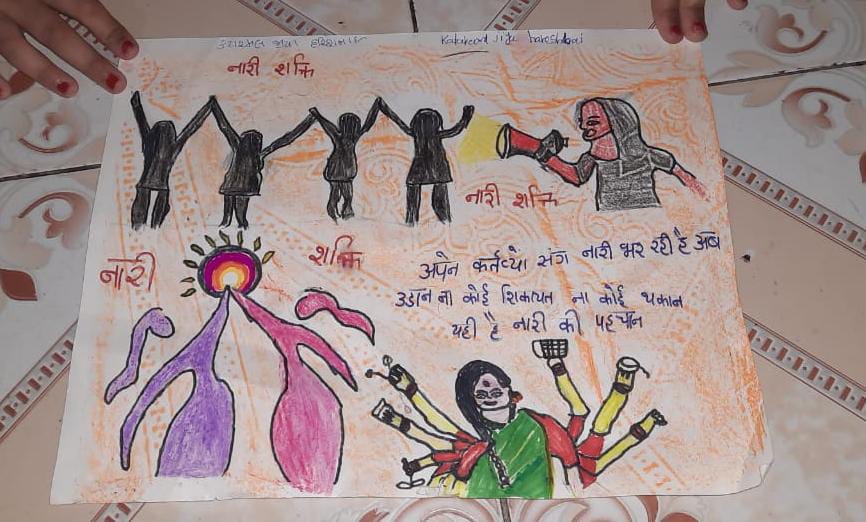 Katareand Jigu hareshbai
नारी शक्ति
नारी शक्ति
नारी शक्ति
अपेन कर्तव्ये संग नारी भर रही है अब
उडान ना कोई शिकायत ना कोई थकान
यही है नारी की पहचान